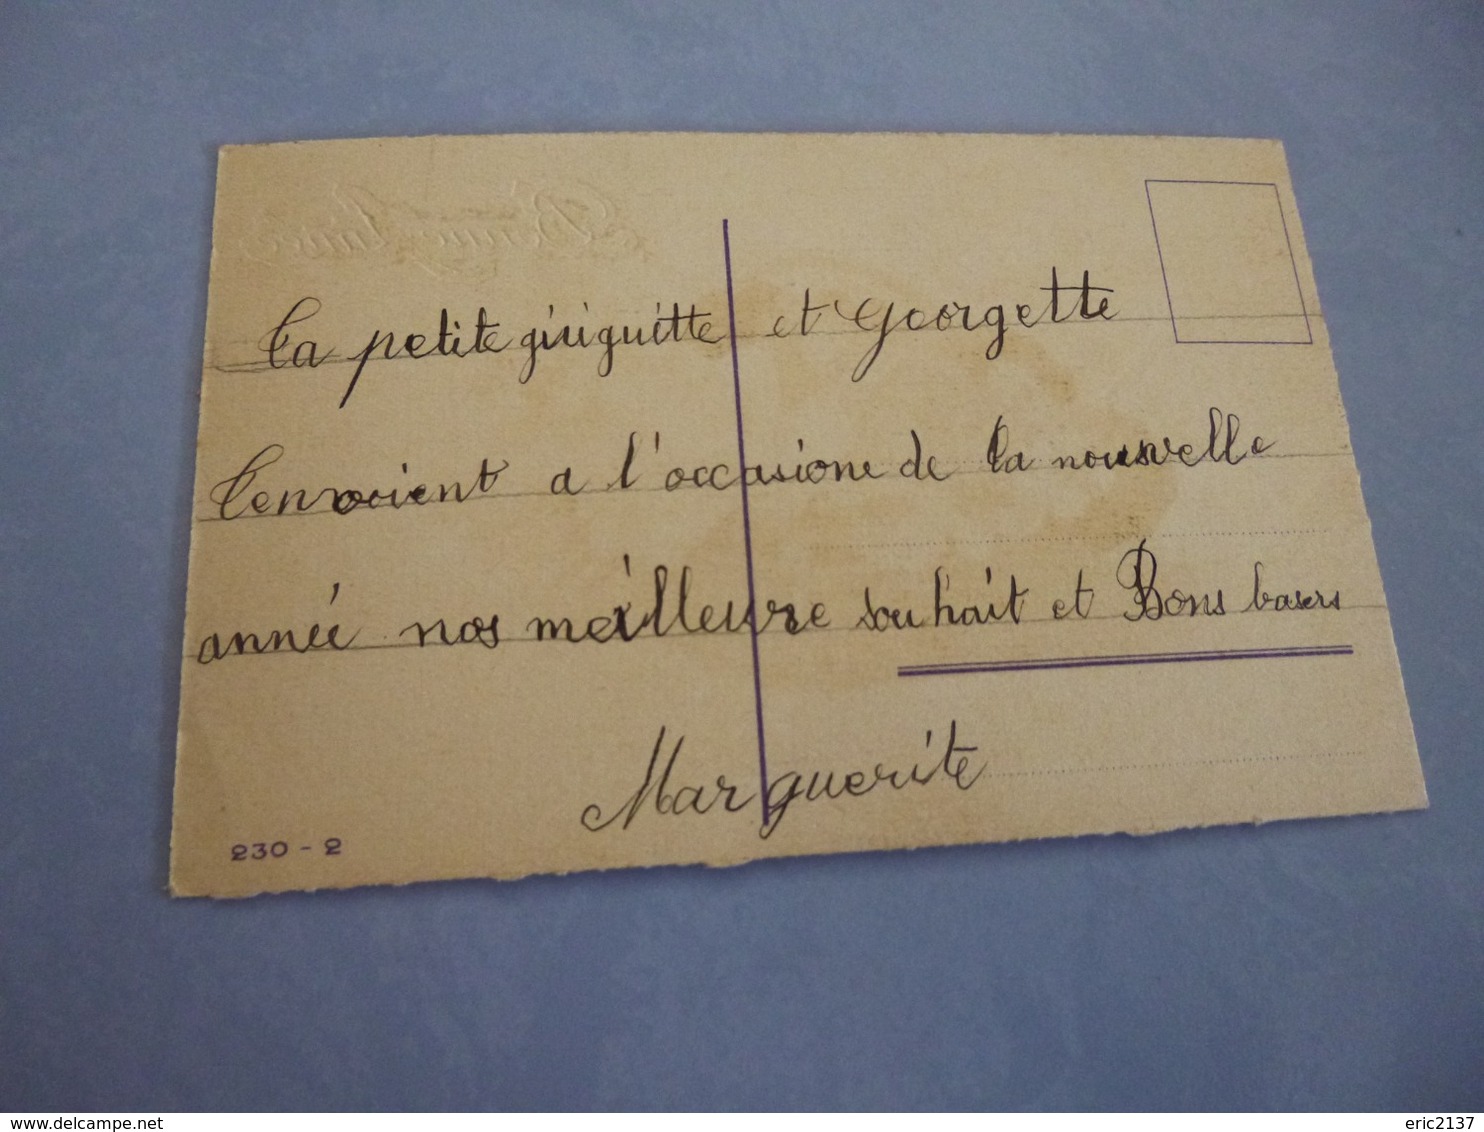 Ta petite giriguitte et Georgette
T'envoient a l'occasione de la nouvelle
année nos meilleure souhait et Bons basers
Marguerite
230 - 2
Bonne Année
delcampe.net
eric2137